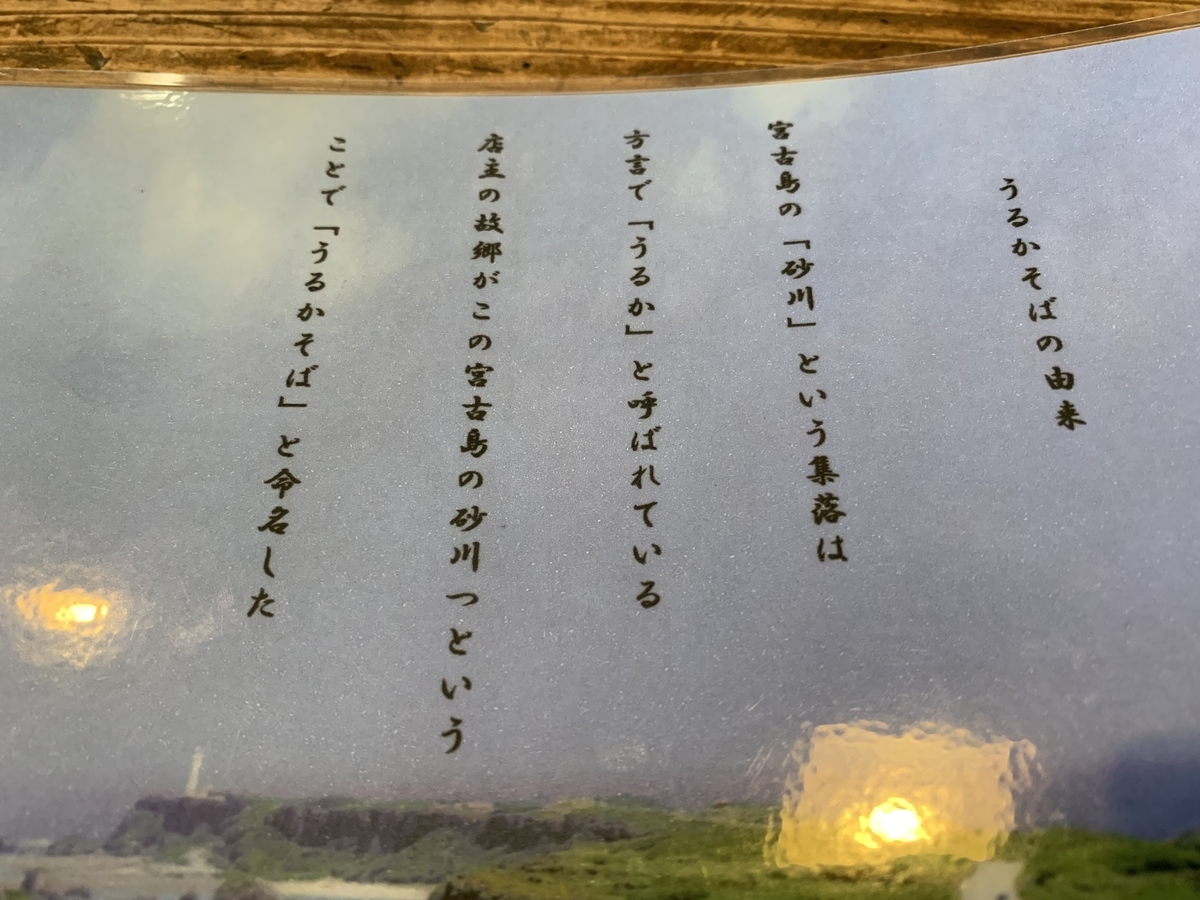 うるかそばの由来
宮古島の「砂川」という集落は
方言で「うるか」と呼ばれている
店主の故郷がこの宮古島の砂川っという
ことで「うるかそば」と命名した